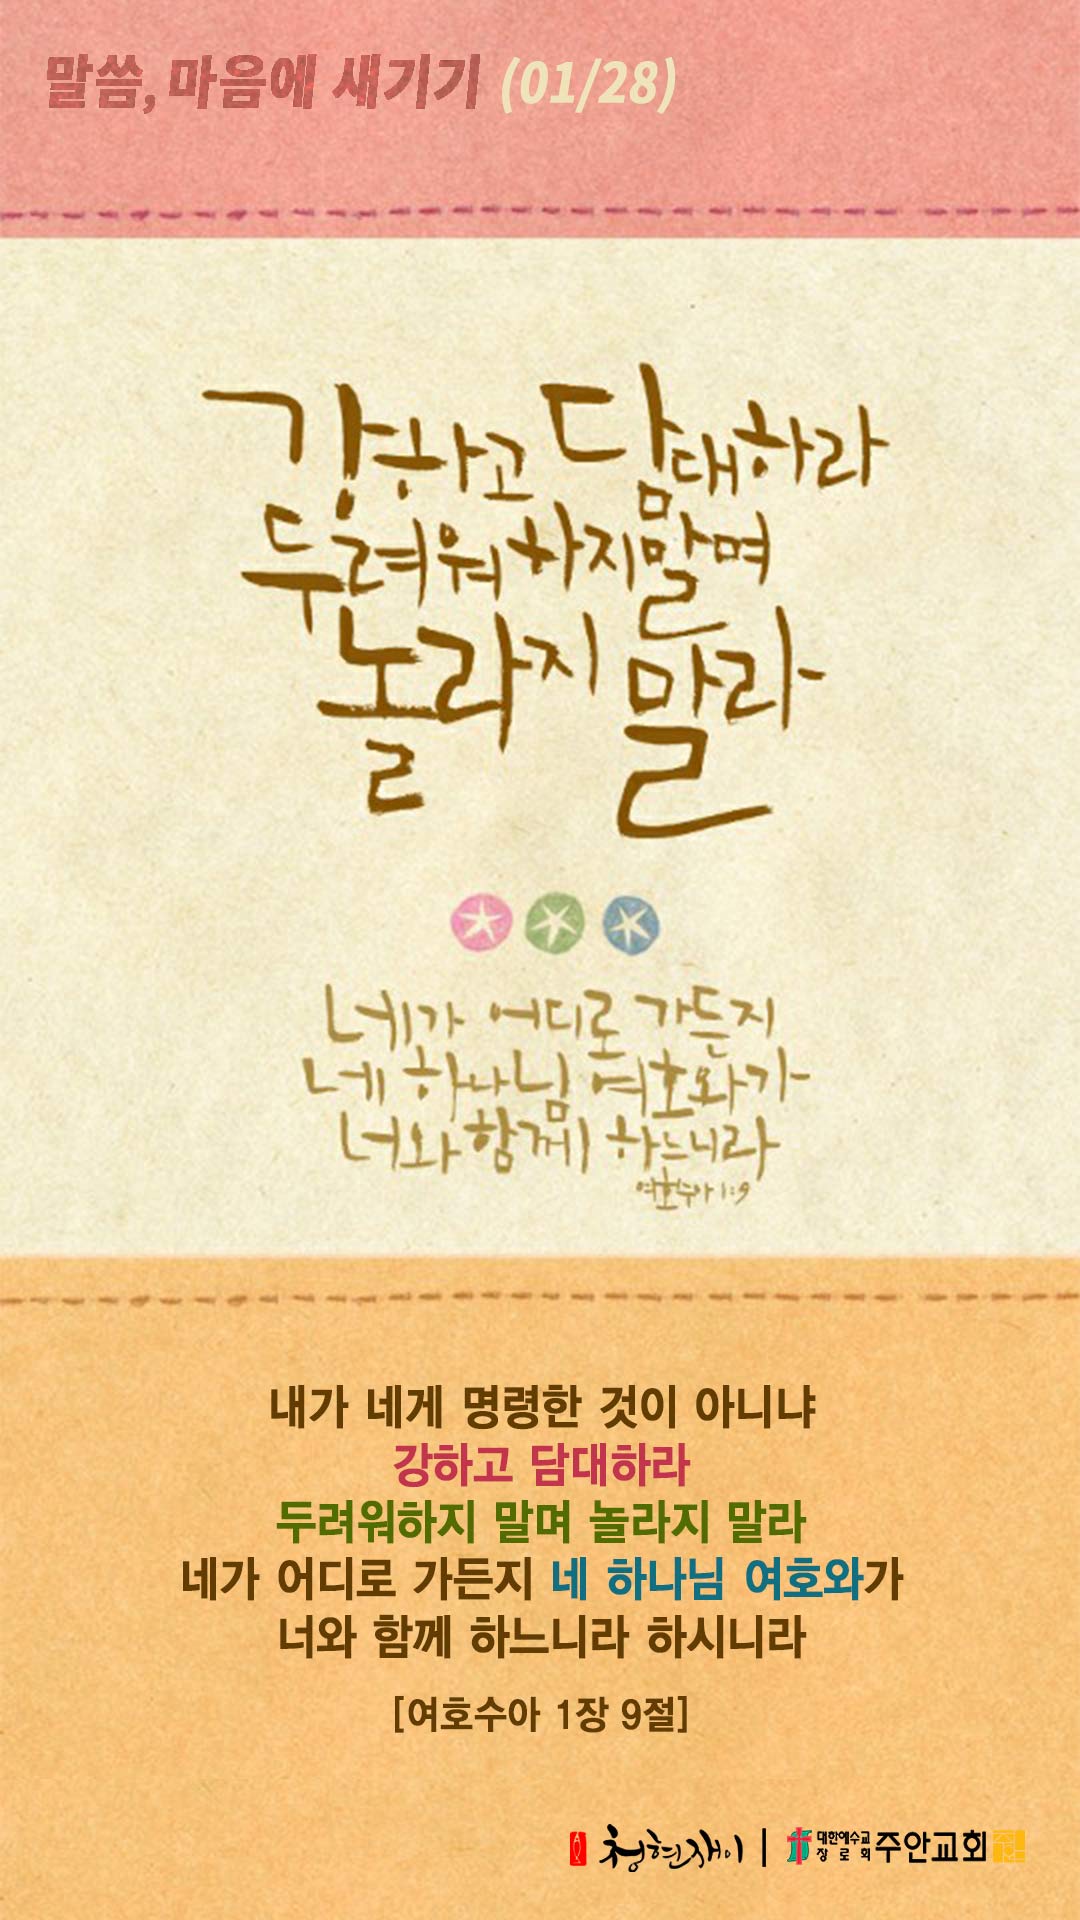 말씀, 마음에 새기기 (01/28)
강하고 담대하라
두려워하지말며
놀라지 말라
네가 어디로 가든지
네 하나님 여호와가
너와 함께 하느니라
여호수아 1:9
내가 네게 명령한 것이 아니냐
강하고 담대하라
두려워하지 말며 놀라지 말라
네가 어디로 가든지 네 하나님 여호와가
너와 함께 하느니라 하시니라
[여호수아 1장 9절]
청현재이 | 대한예수교 장로회 주안교회